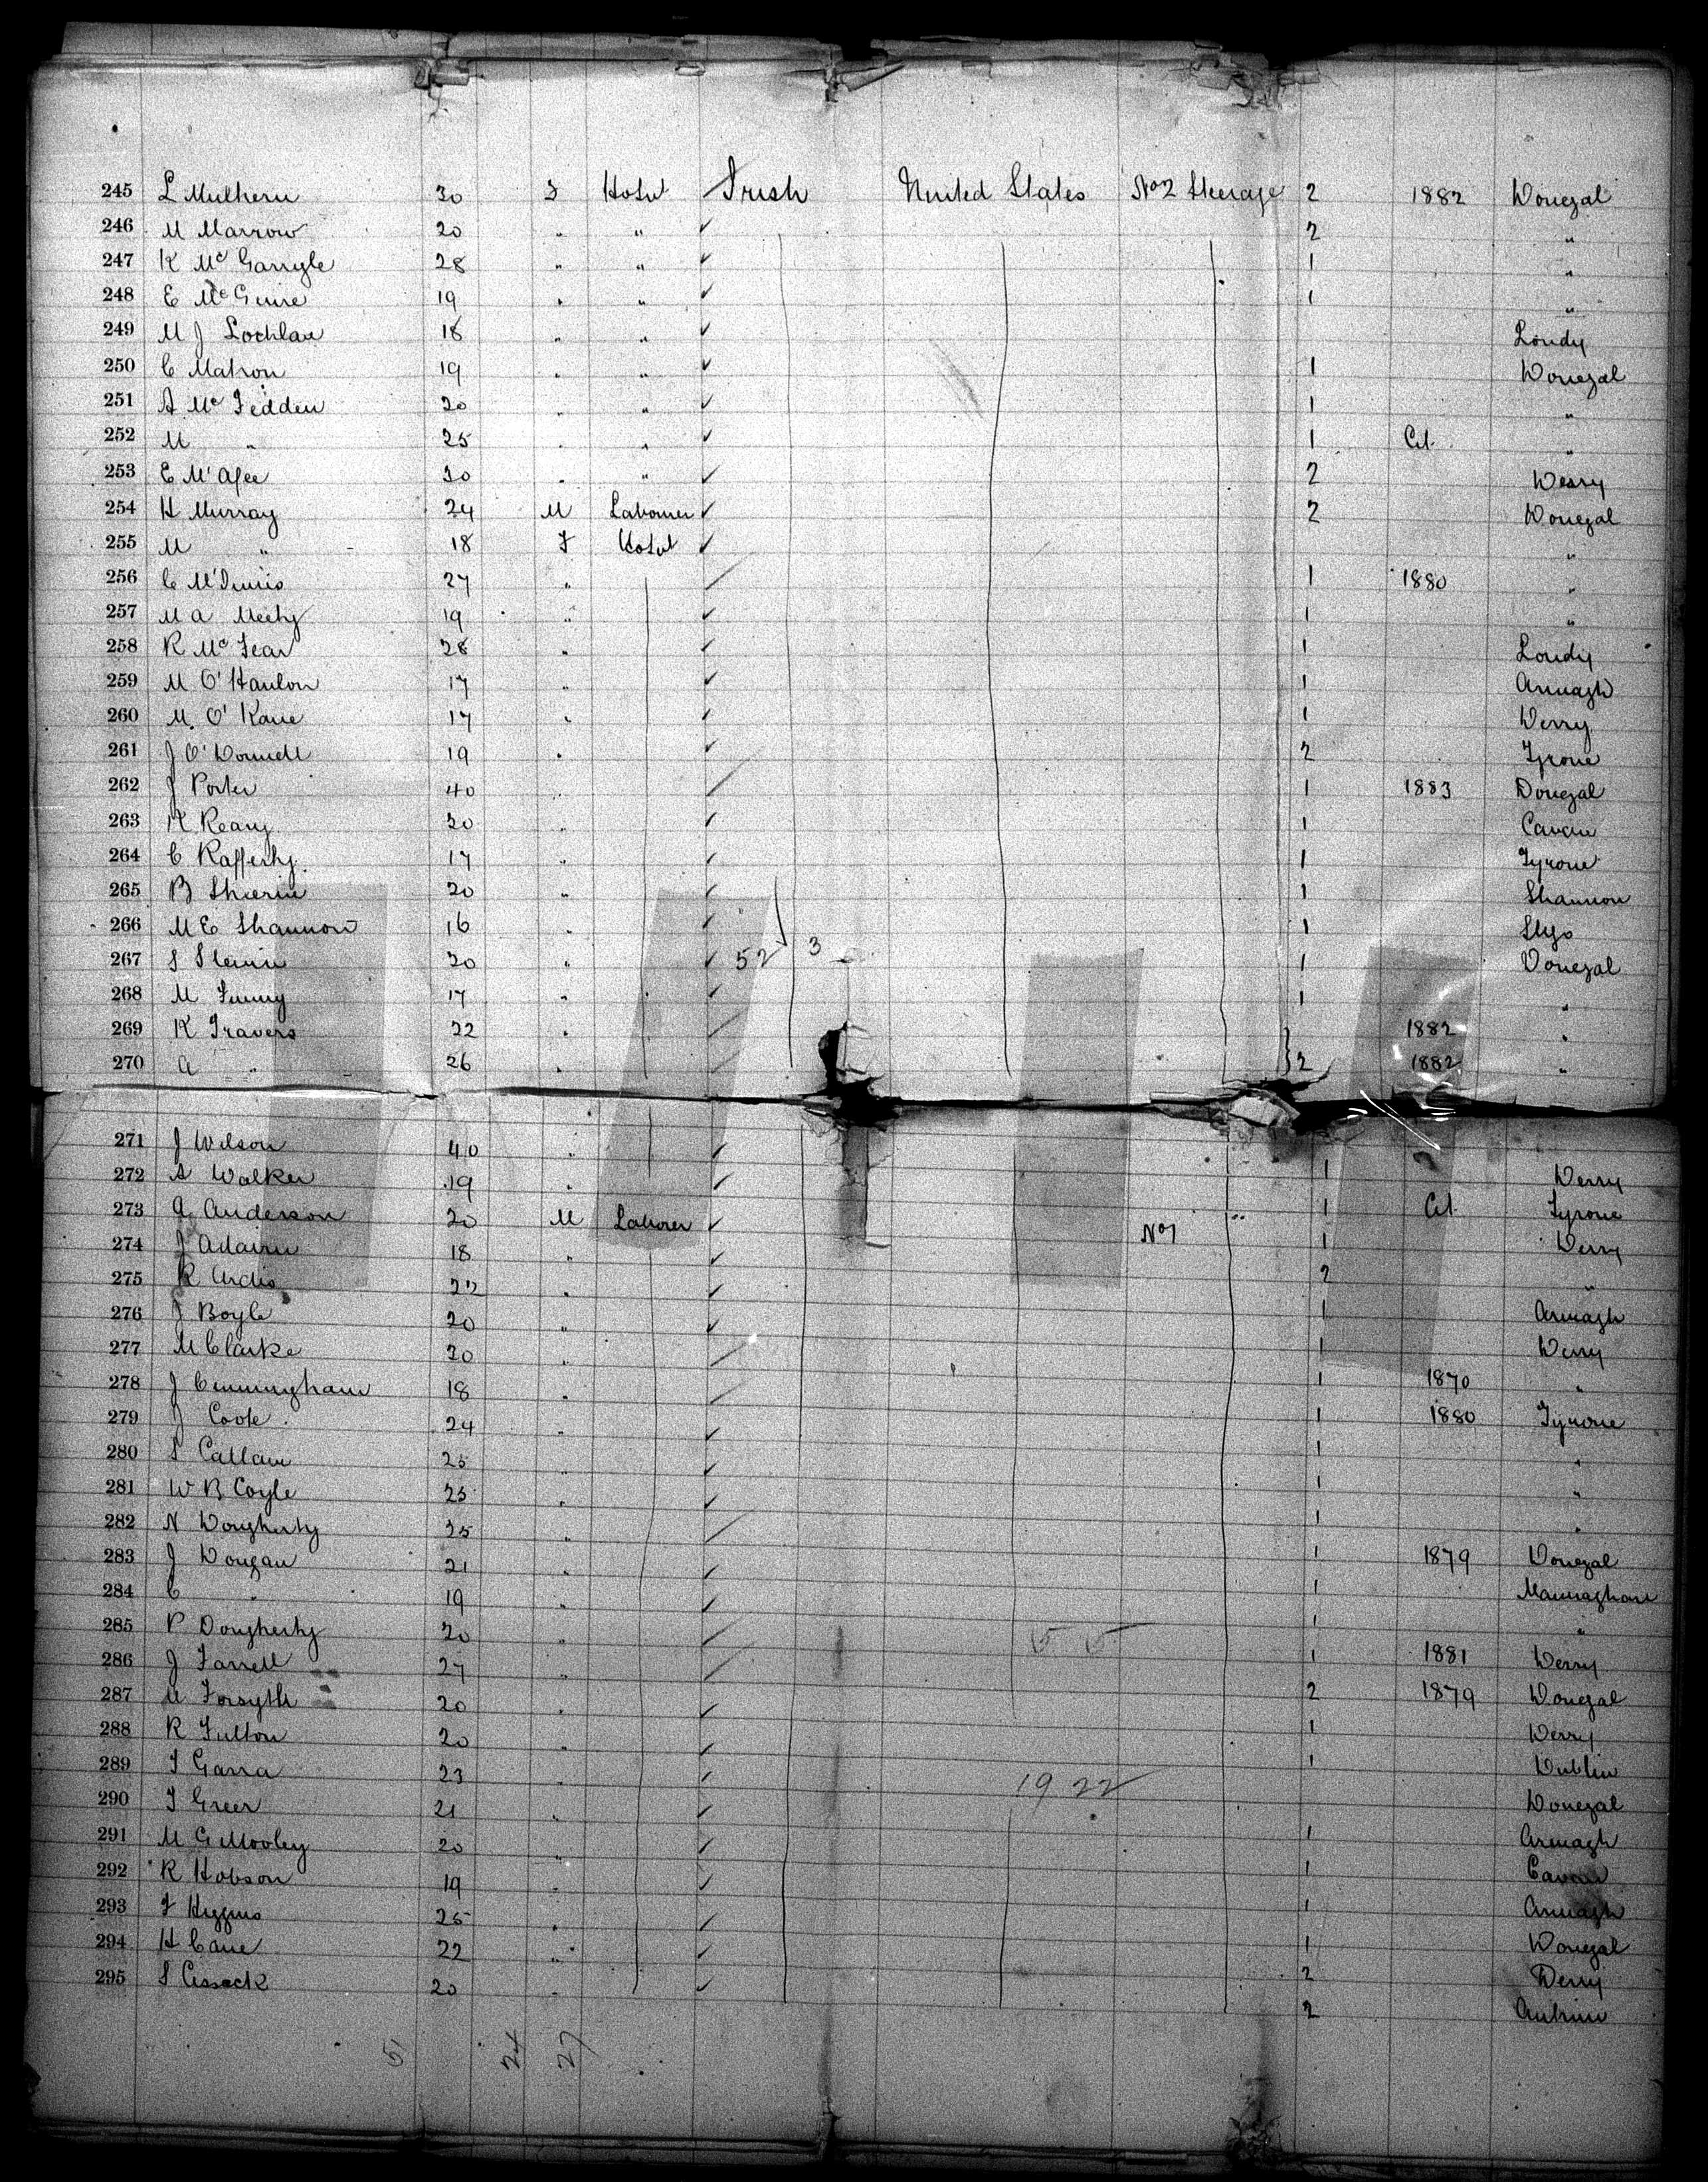 245 L Mulhern 30 F Hotel Irish United States No 2 Steerage 2 1882 Donegal
246 M Marrow 20 " " 2 "
247 K Mc Garrigle 28 " " 1 "
248 E Mc Guire 19 " " 1 "
249 M J Lochlan 18 " " Londy
250 C Mahon 19 " " 1 Donegal
251 A Mc Fedden 20 " " 1 "
252 M " 25 " " 1 Cit. "
253 E M'Afee 30 " " 2 Derry
254 H Murray 24 M Laborer 2 Donegal
255 M " 18 F Hotel "
256 C 27 " 1 1880 "
257 M A Meehy 19 " 1 "
258 R Mc Fear 28 " 1 Londy
259 M O'Hanlon 17 " 1 Armagh
260 M. O'Kane 17 " 1 Derry
261 J O'Donnell 19 " 2 Tyrone
262 J Porter 40 " 1 1883 Donegal
263 K Reany 20 " 1 Cavan
264 C Rafferty 17 " 1 Tyrone
265 B 20 " 1 Shannon
266 M E Shannon 16 " 1 Sligo
267 S 20 " 52 3 1 Donegal
268 M 17 " 1 "
269 K Travers 22 " 1882 "
270 A " 26 " 2 1882 "
271 J Wilson 40 "
272 A Walker 19 " 1 Derry
273 A Anderson 20 M Laborer No 1 " 1 Cit. Tyrone
274 J Adairn 18 " 1 Derry
275 R Ardis 22 " 2 "
276 J Boyle 20 " 1 Armagh
277 M Clarke 20 " 1 Derry
278 J Cunningham 18 " 1 1870 "
279 J Coote 24 " 1 1880 Tyrone
280 S Callan 25 " 1 "
281 W B Coyle 25 " 1 "
282 N Dougherty 35 " 1 "
283 J Dougan 21 " 1 1879 Donegal
284 C " 19 " 1 Monaghan
285 P Dougherty 20 " 1 "
286 J Farrell 27 " 1 1881 Derry
287 M Forsyth 20 " 2 1879 Donegal
288 R Fulton 20 " 1 Derry
289 T Garra 23 " 1922 1 Dublin
290 T Greer 21 " Donegal
291 M Gillooley 20 " 1 Armagh
292 R Hobson 19 " 1 Cavan
293 F Higgins 25 " 1 Armagh
294 H Cane 22 " 1 Donegal
295 S Cussack 20 " 2 Derry
2 Antrim
51 24 27